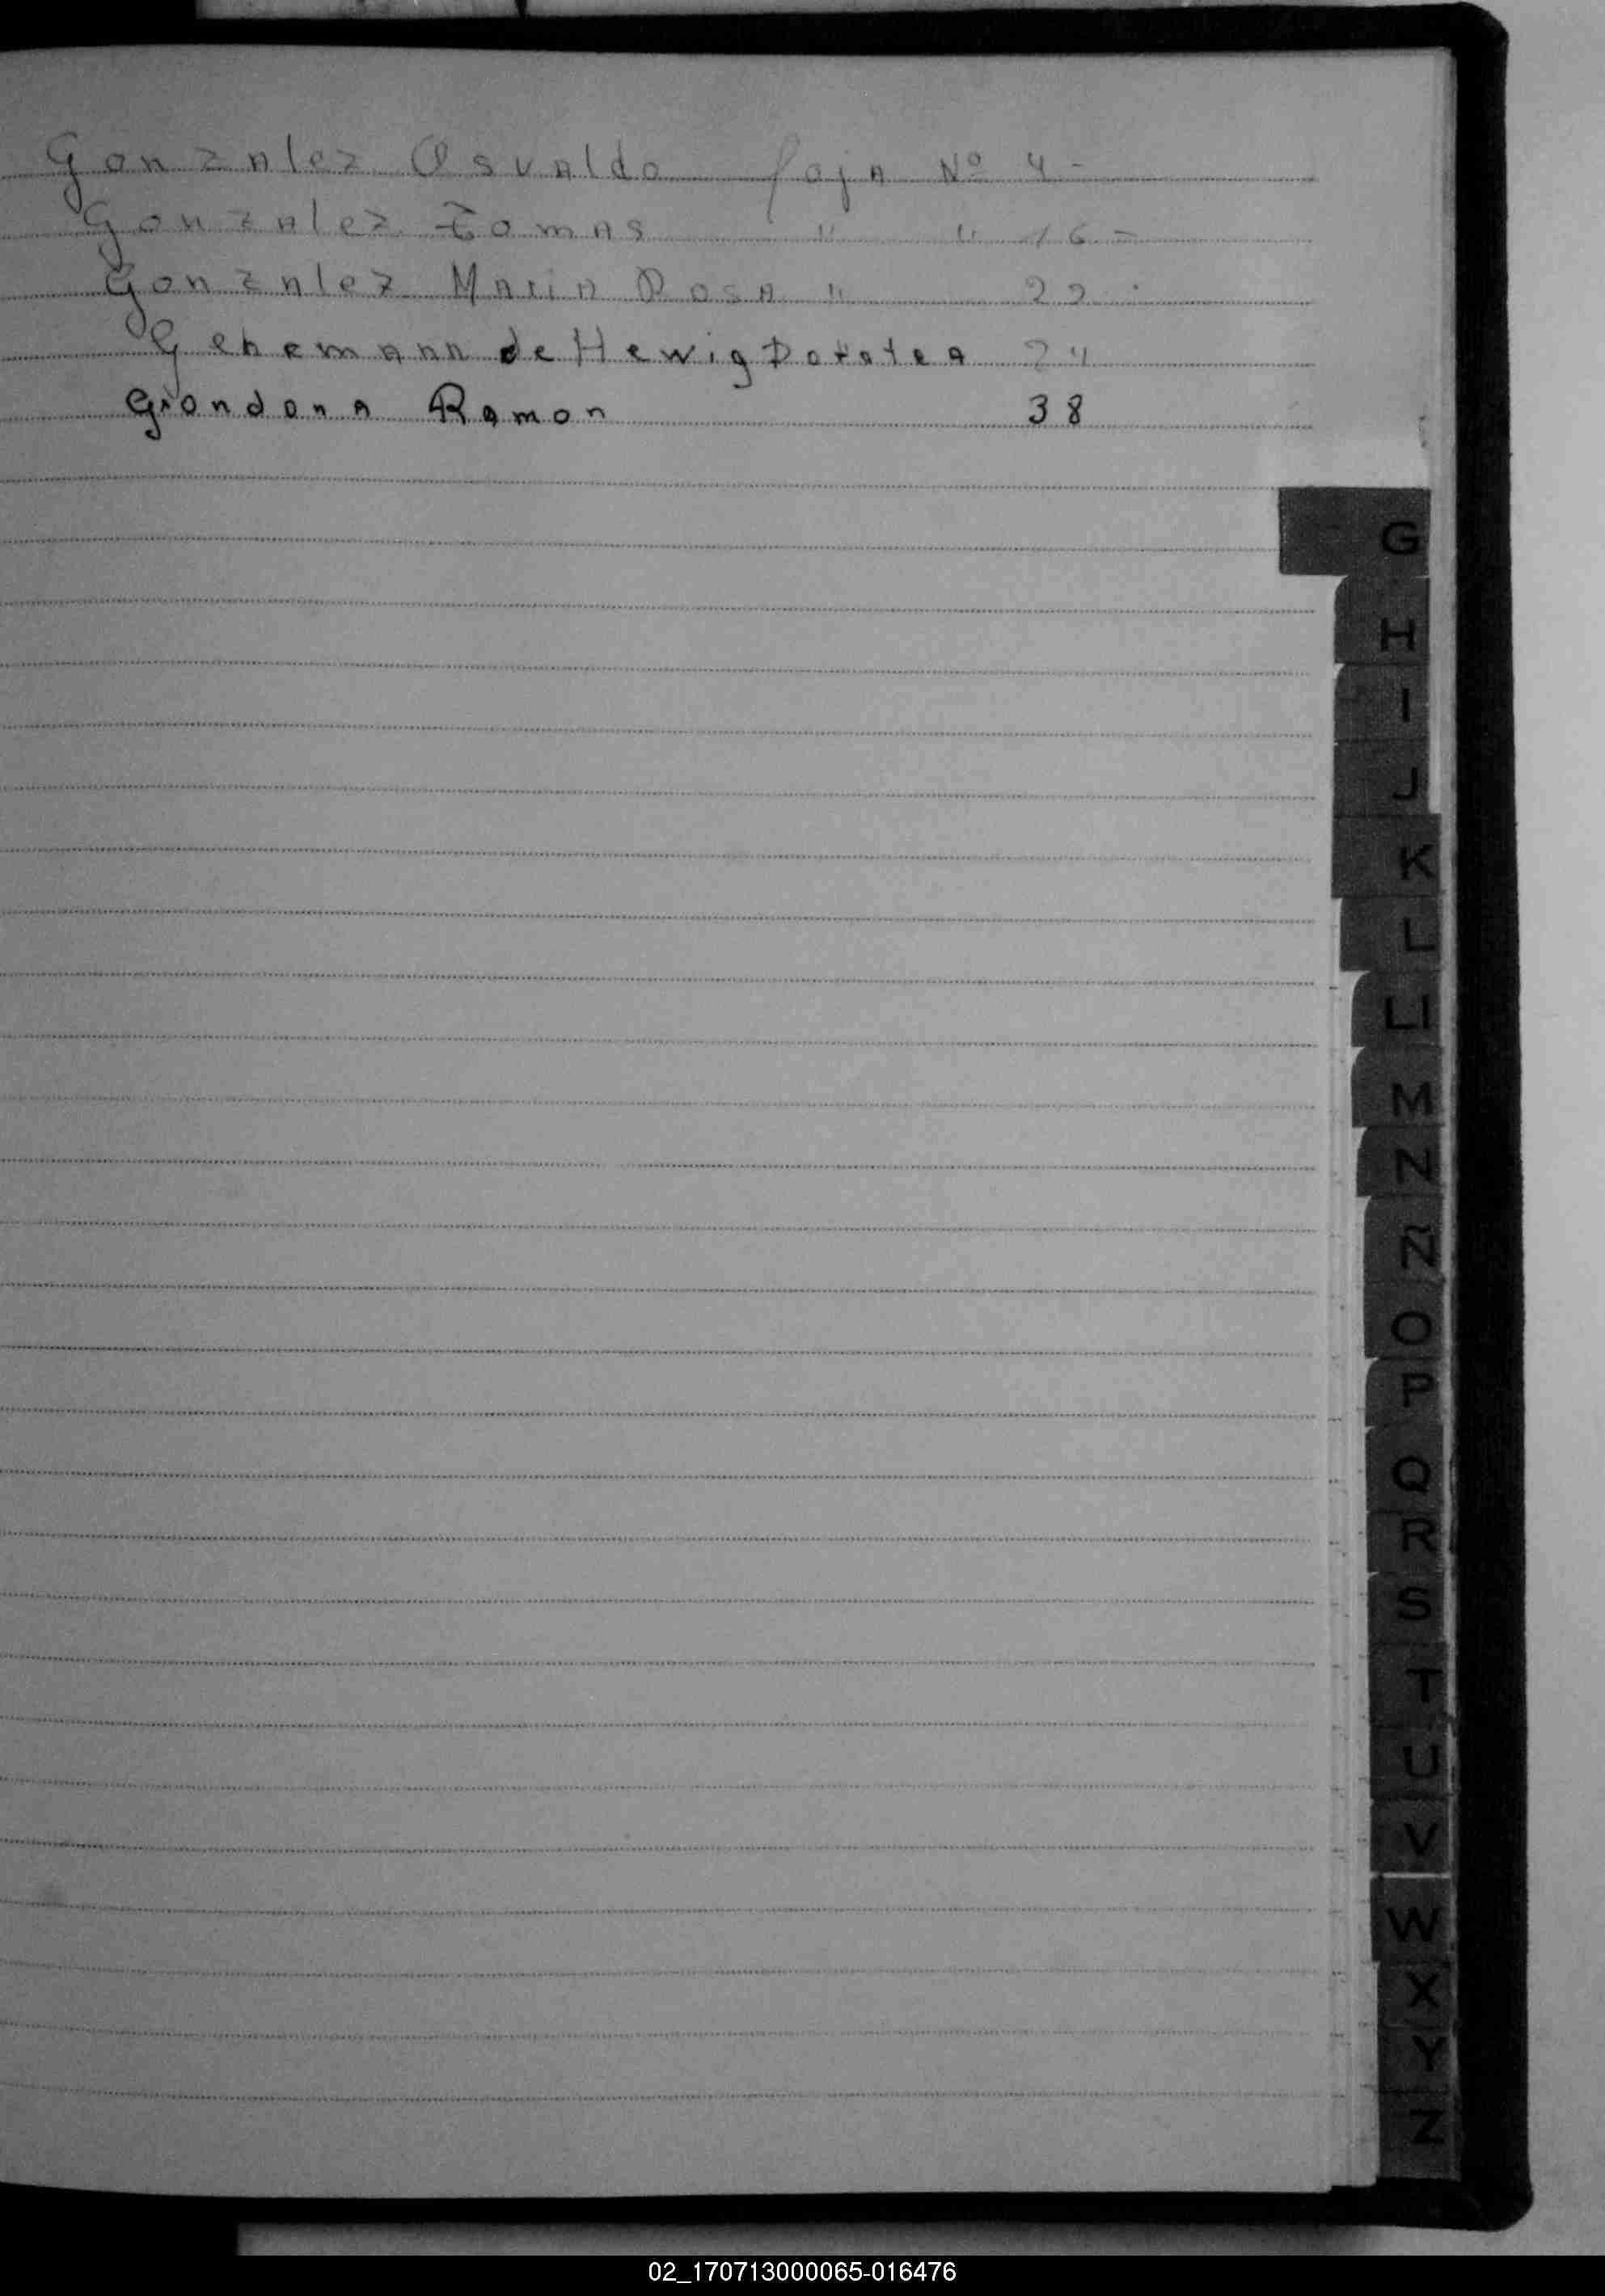 Gonzalez Osvaldo foja Nº 4-
Gonzalez Tomas " " 16-
Gonzalez Maria Rosa " 22.
Gehemann de Hewig Dorotea 24
Grondona Ramon 38
G
H
I
J
K
L
Ll
M
N
Ñ
O
P
Q
R
S
T
U
V
W
X
Y
Z
02_170713000065-016476